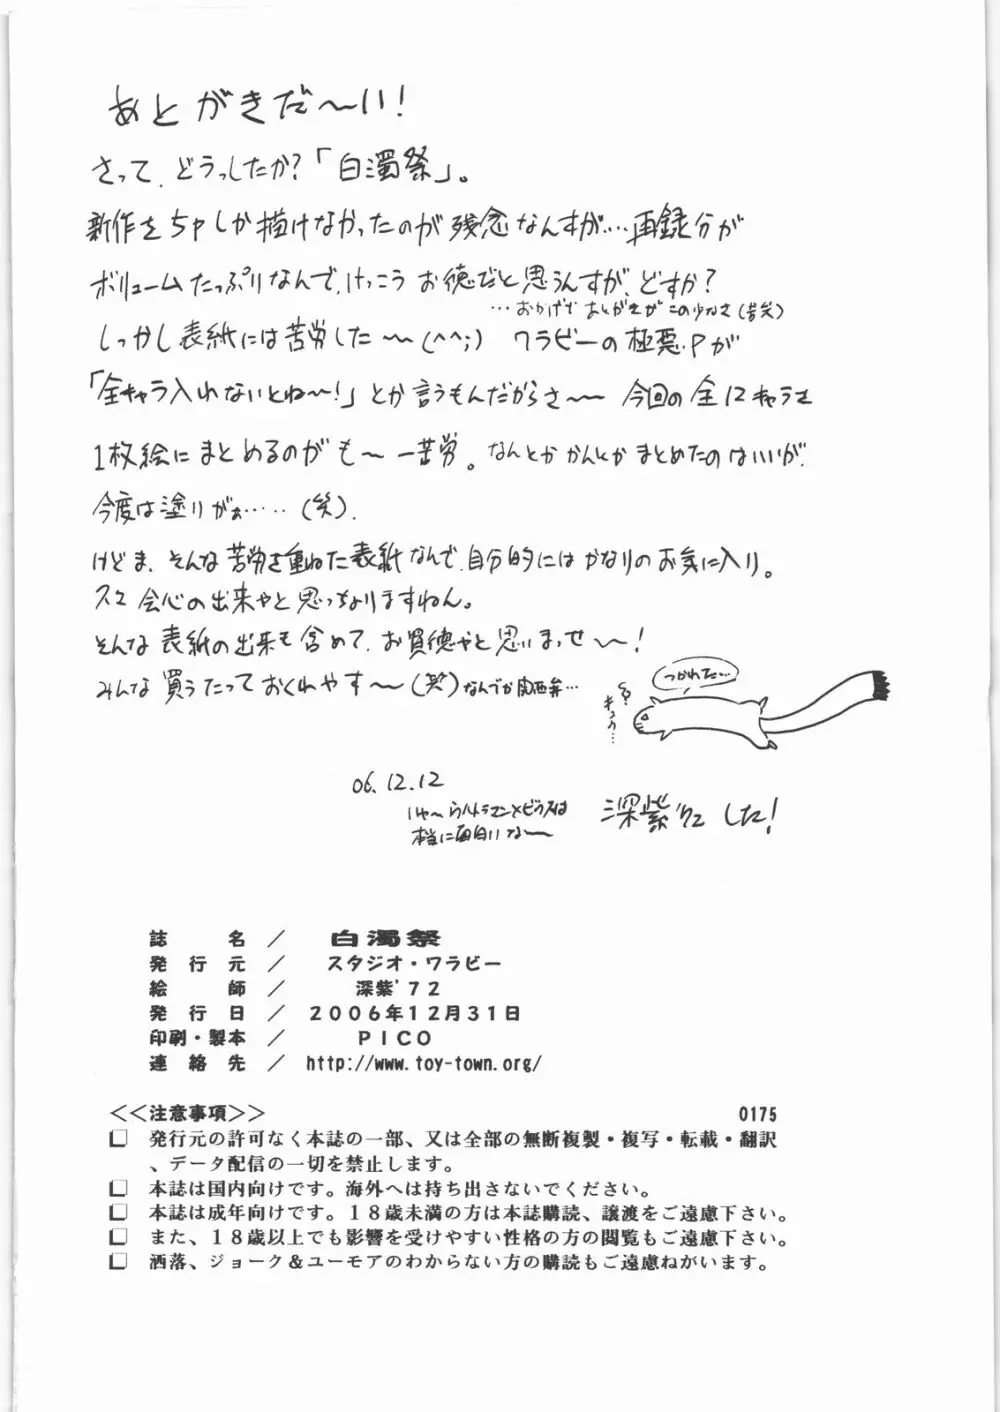 あとがきだ〜い!
さって、どうっしたか?「白濁祭」。
新作をちゃしか描けなかったのが残念なんすが…、再録分が
ボリュームたっぷりなんで、けっこうお徳だと思うんすが、どすか?
…おかげであとがきがこの少なさ(苦笑)
しっかし表紙には苦労した〜(^^;) ワラビーの極悪Pが
「全キャラ入れないとね〜!」とか言うもんだからさ〜 今回の全12キャラを
1枚絵にまとめるのがも〜一苦労。なんとかかんとかまとめたのはいいが、
今度は塗りがぁ……(笑)。
けどま、そんな苦労を重ねた表紙なんで、自分的にはかなりのお気に入り。
会心の出来やと思っちょりますねん。
そんな表紙の出来も含めて、お買徳やと思いまっせ〜!
みんな買うたっておくれやす〜(笑)なんでか関西弁…
つかれた…
キュウ…
06.12.12
いや〜ウルトラマンメビウスは
本当に面白いな〜
深紫'72した!
誌名/ 白濁祭
発行元/ スタジオ・ワラビー
絵師/ 深紫'72
発行日/ 2006年12月31日
印刷・製本/ PICO
連絡先/ http://www.toy-town.org/
<<注意事項>> 0175
□ 発行元の許可なく本誌の一部、又は全部の無断複製・複写・転載・翻訳
、データ配信の一切を禁止します。
□ 本誌は国内向けです。海外へは持ち出さないでください。
□ 本誌は成年向けです。18歳未満の方は本誌購読、譲渡をご遠慮下さい。
□ また、18歳以上でも影響を受けやすい性格の方の閲覧もご遠慮下さい。
□ 洒落、ジョーク&ユーモアのわからない方の購読もご遠慮ねがいます。